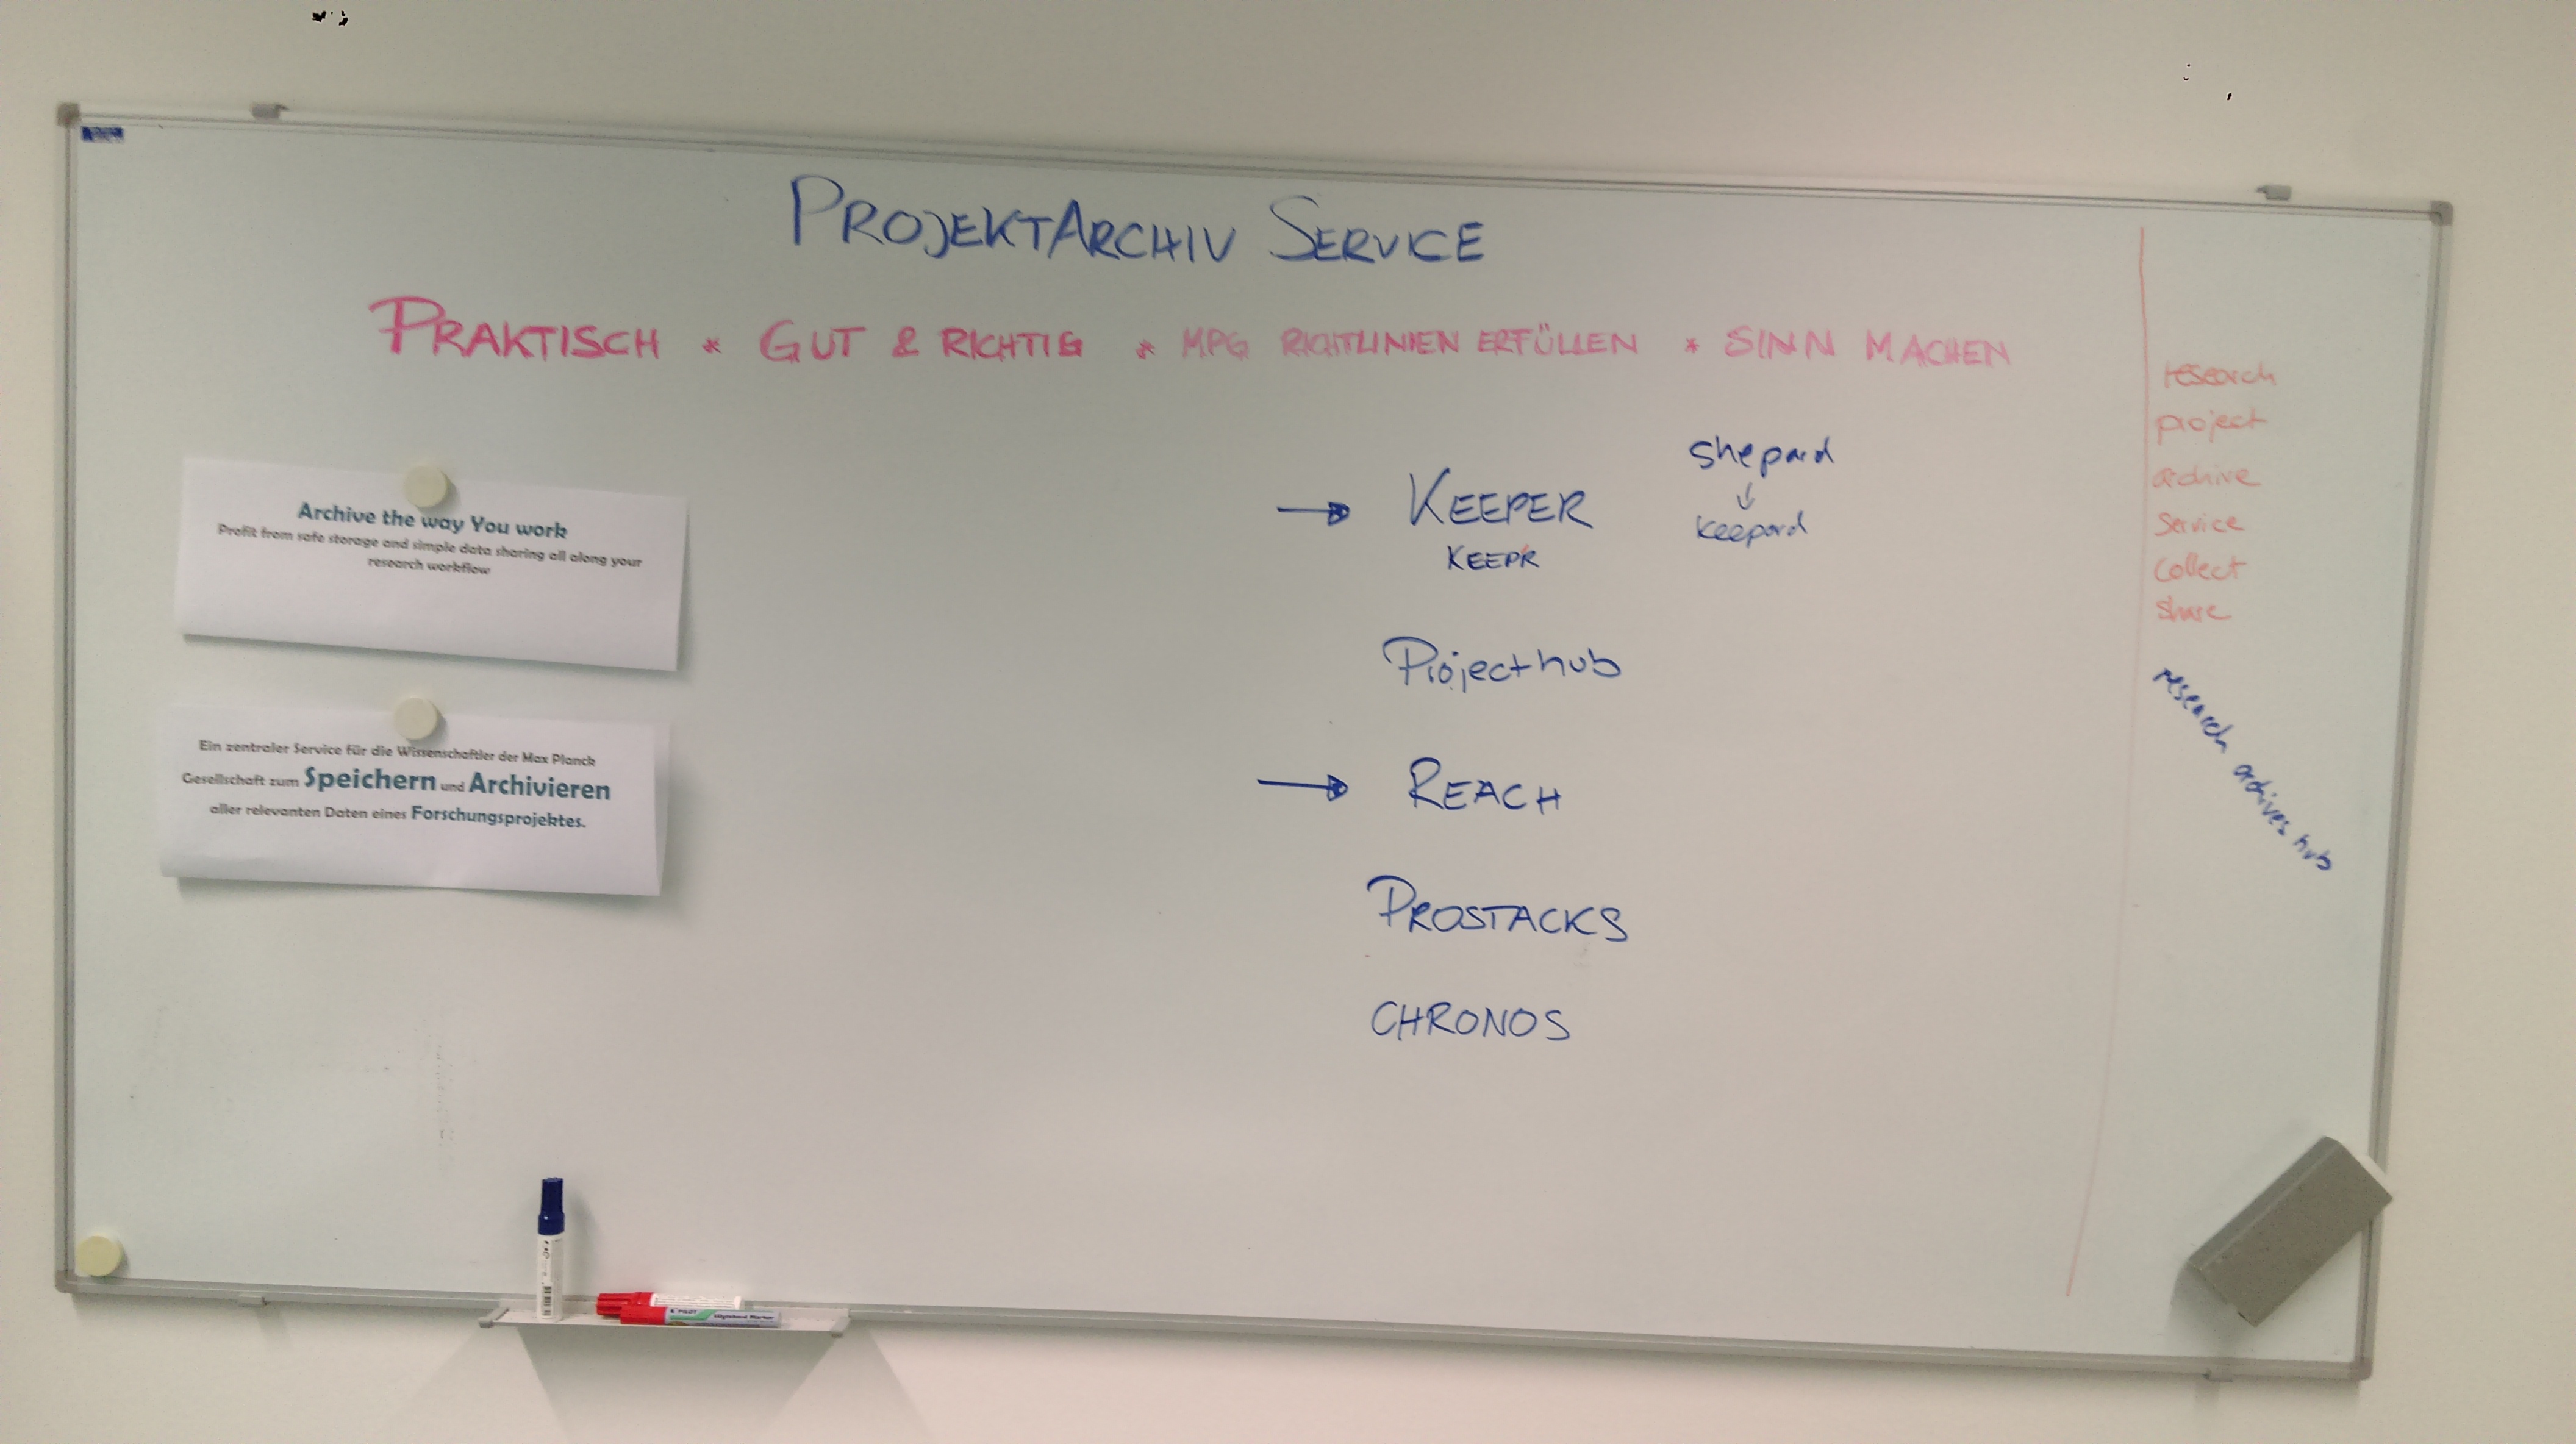 PROJEKTARCHIV SERVICE
PRAKTISCH * GUT & RICHTIG * MPG RICHTLINIEN ERFÜLLEN * SINN MACHEN
Archive the way You work
Profit from safe storage and simple data sharing all along your
research workflow
Ein zentraler Service für die Wissenschaftler der Max Planck
Gesellschaft zum Speichern und Archivieren
aller relevanten Daten eines Forschungsprojektes.
→ KEEPER
KEEPR
shepard
↓
keepard
Projecthub
→ REACH
PROSTACKS
CHRONOS
research
project
archive
Service
Collect
share
research archives hub